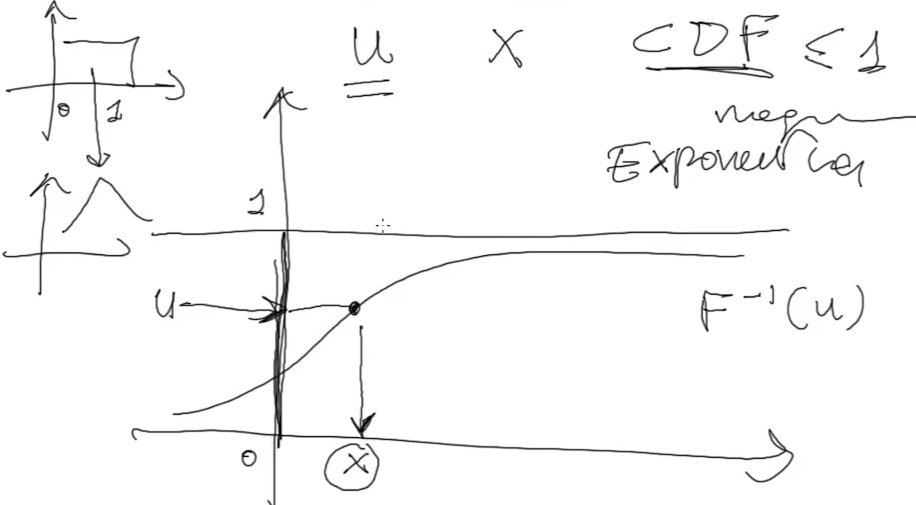 U X CDF ≤ 1
Exponential
0 1
1
U
F⁻¹(u)
0
X